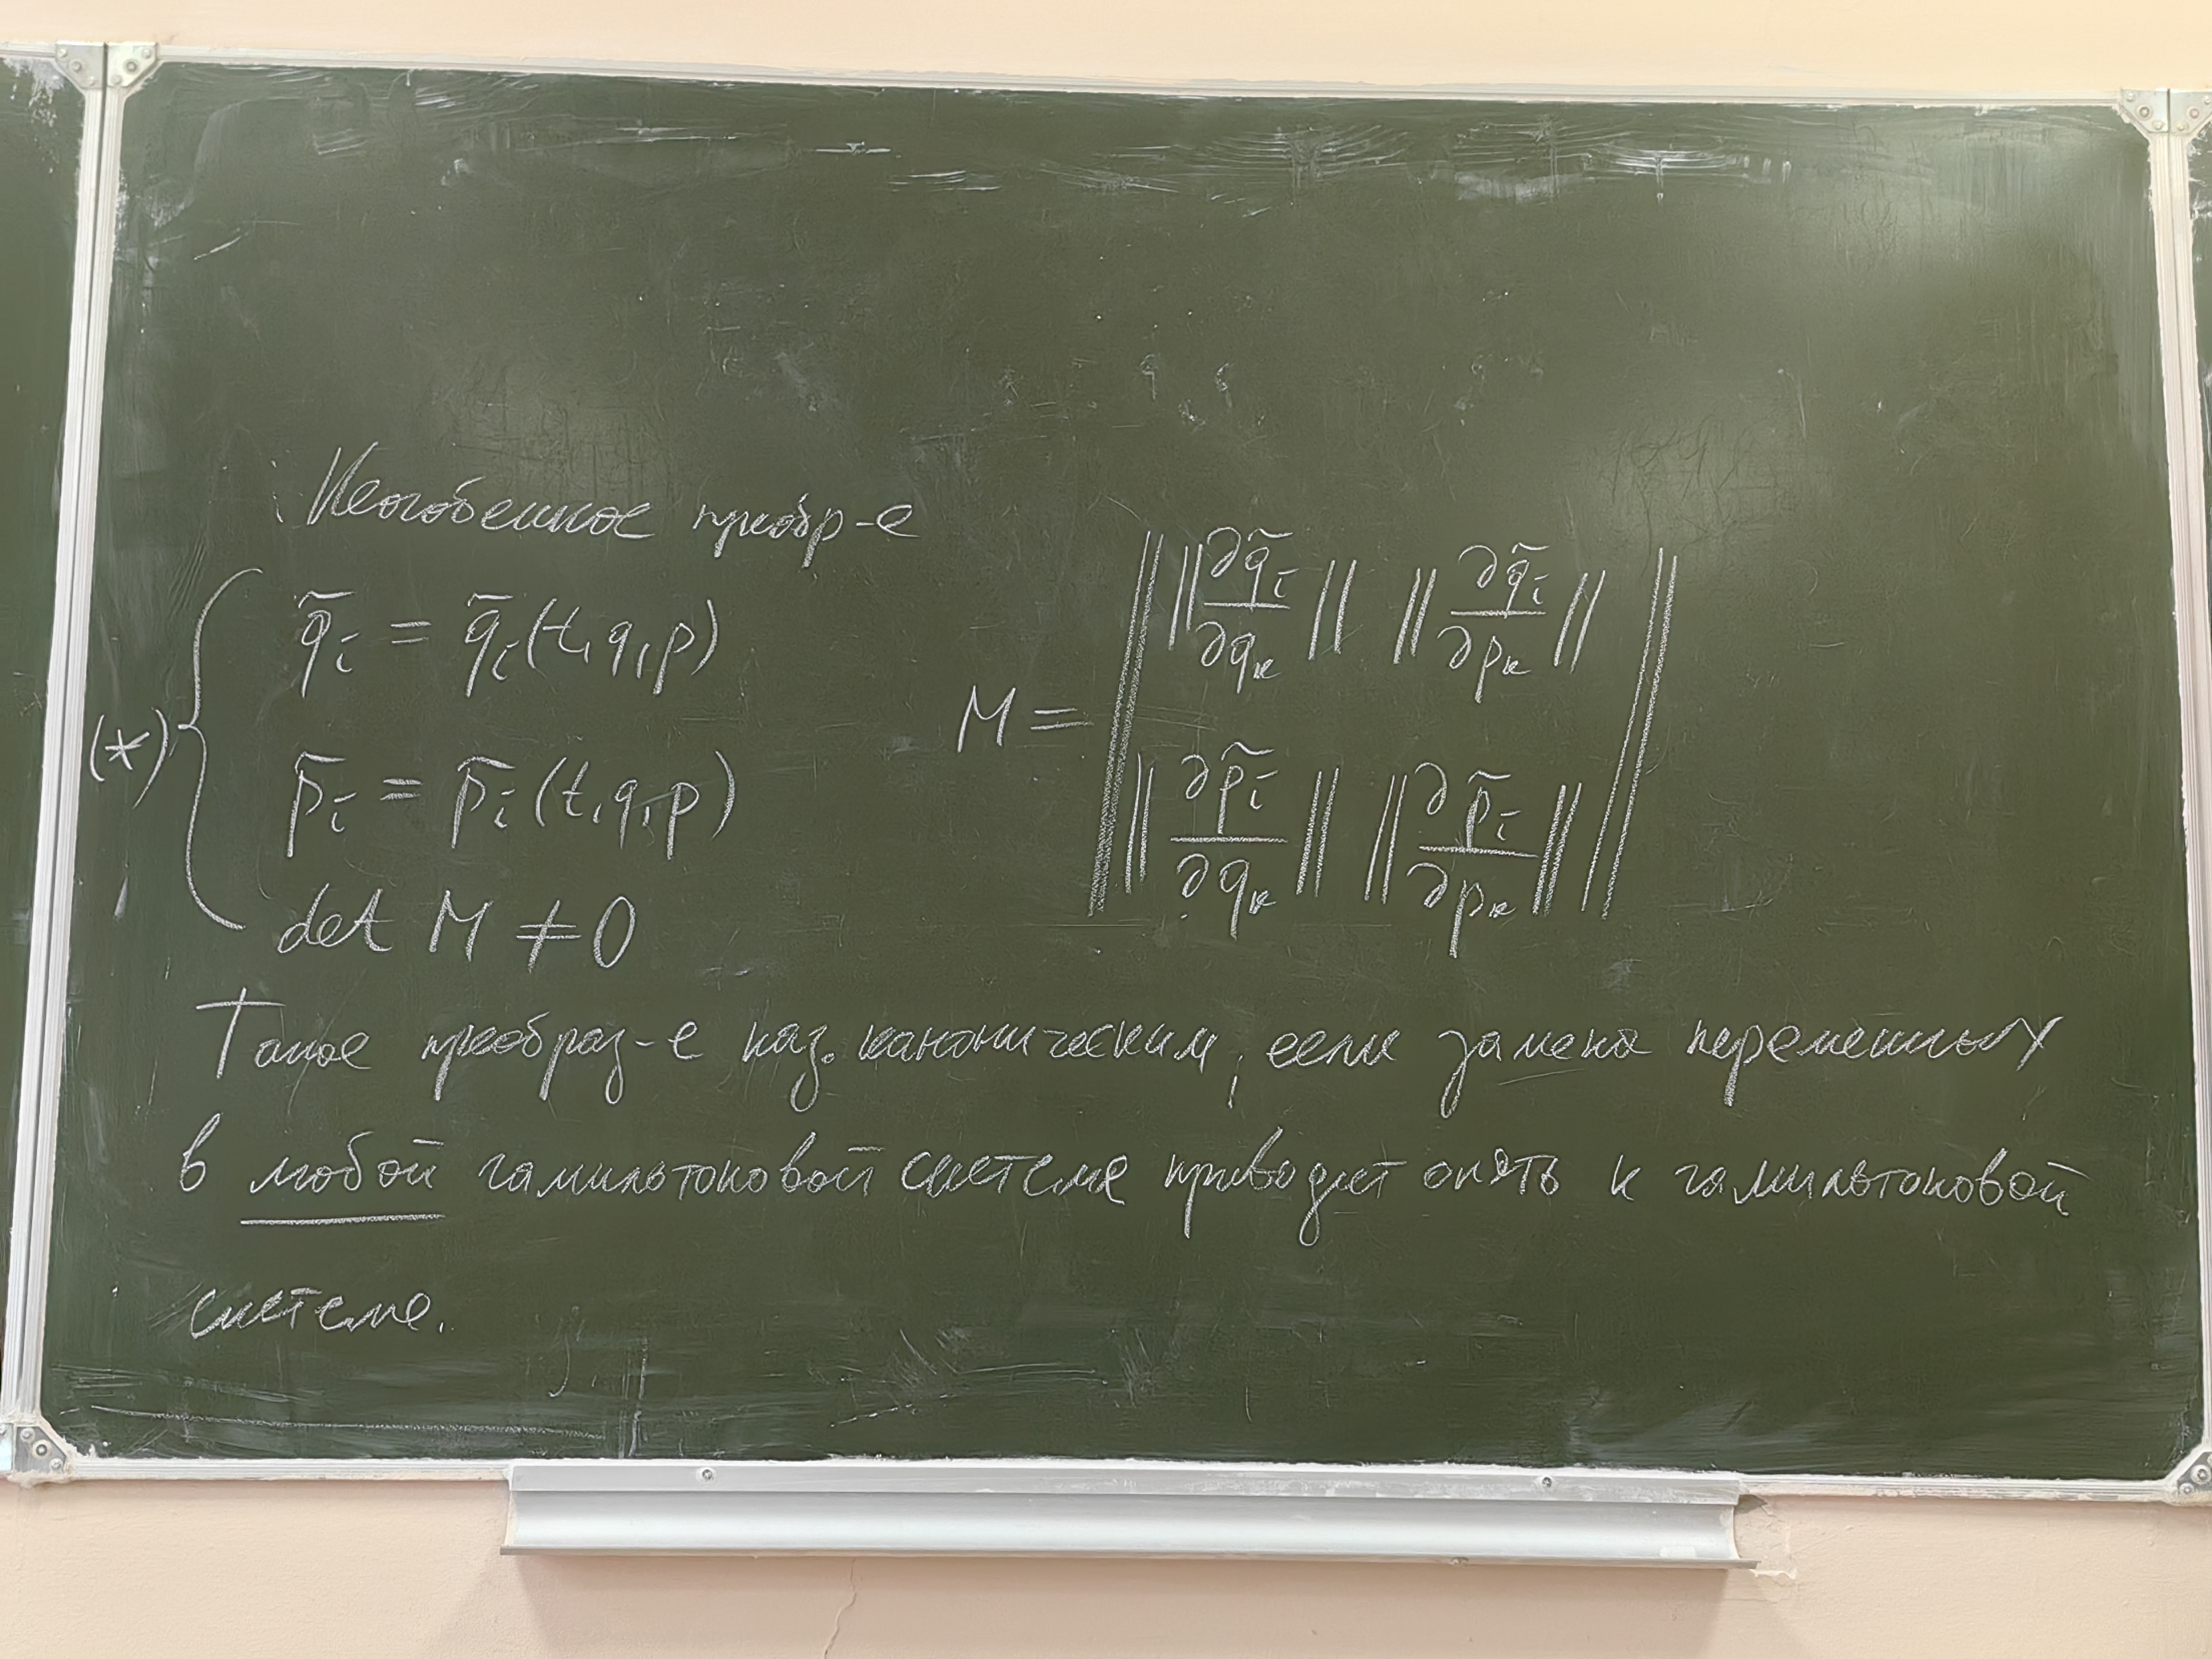 Неособенное преобр-е
(*) { q̃ᵢ = q̃ᵢ(t, q, p)
p̃ᵢ = p̃ᵢ(t, q, p)
det M ≠ 0
M = ‖ ‖∂q̃ᵢ/∂qₖ‖ ‖∂q̃ᵢ/∂pₖ‖
‖∂p̃ᵢ/∂qₖ‖ ‖∂p̃ᵢ/∂pₖ‖ ‖
Такое преобраз-е наз. каноническим, если замена переменных
в любой гамильтоновой системе приводит опять к гамильтоновой
системе.